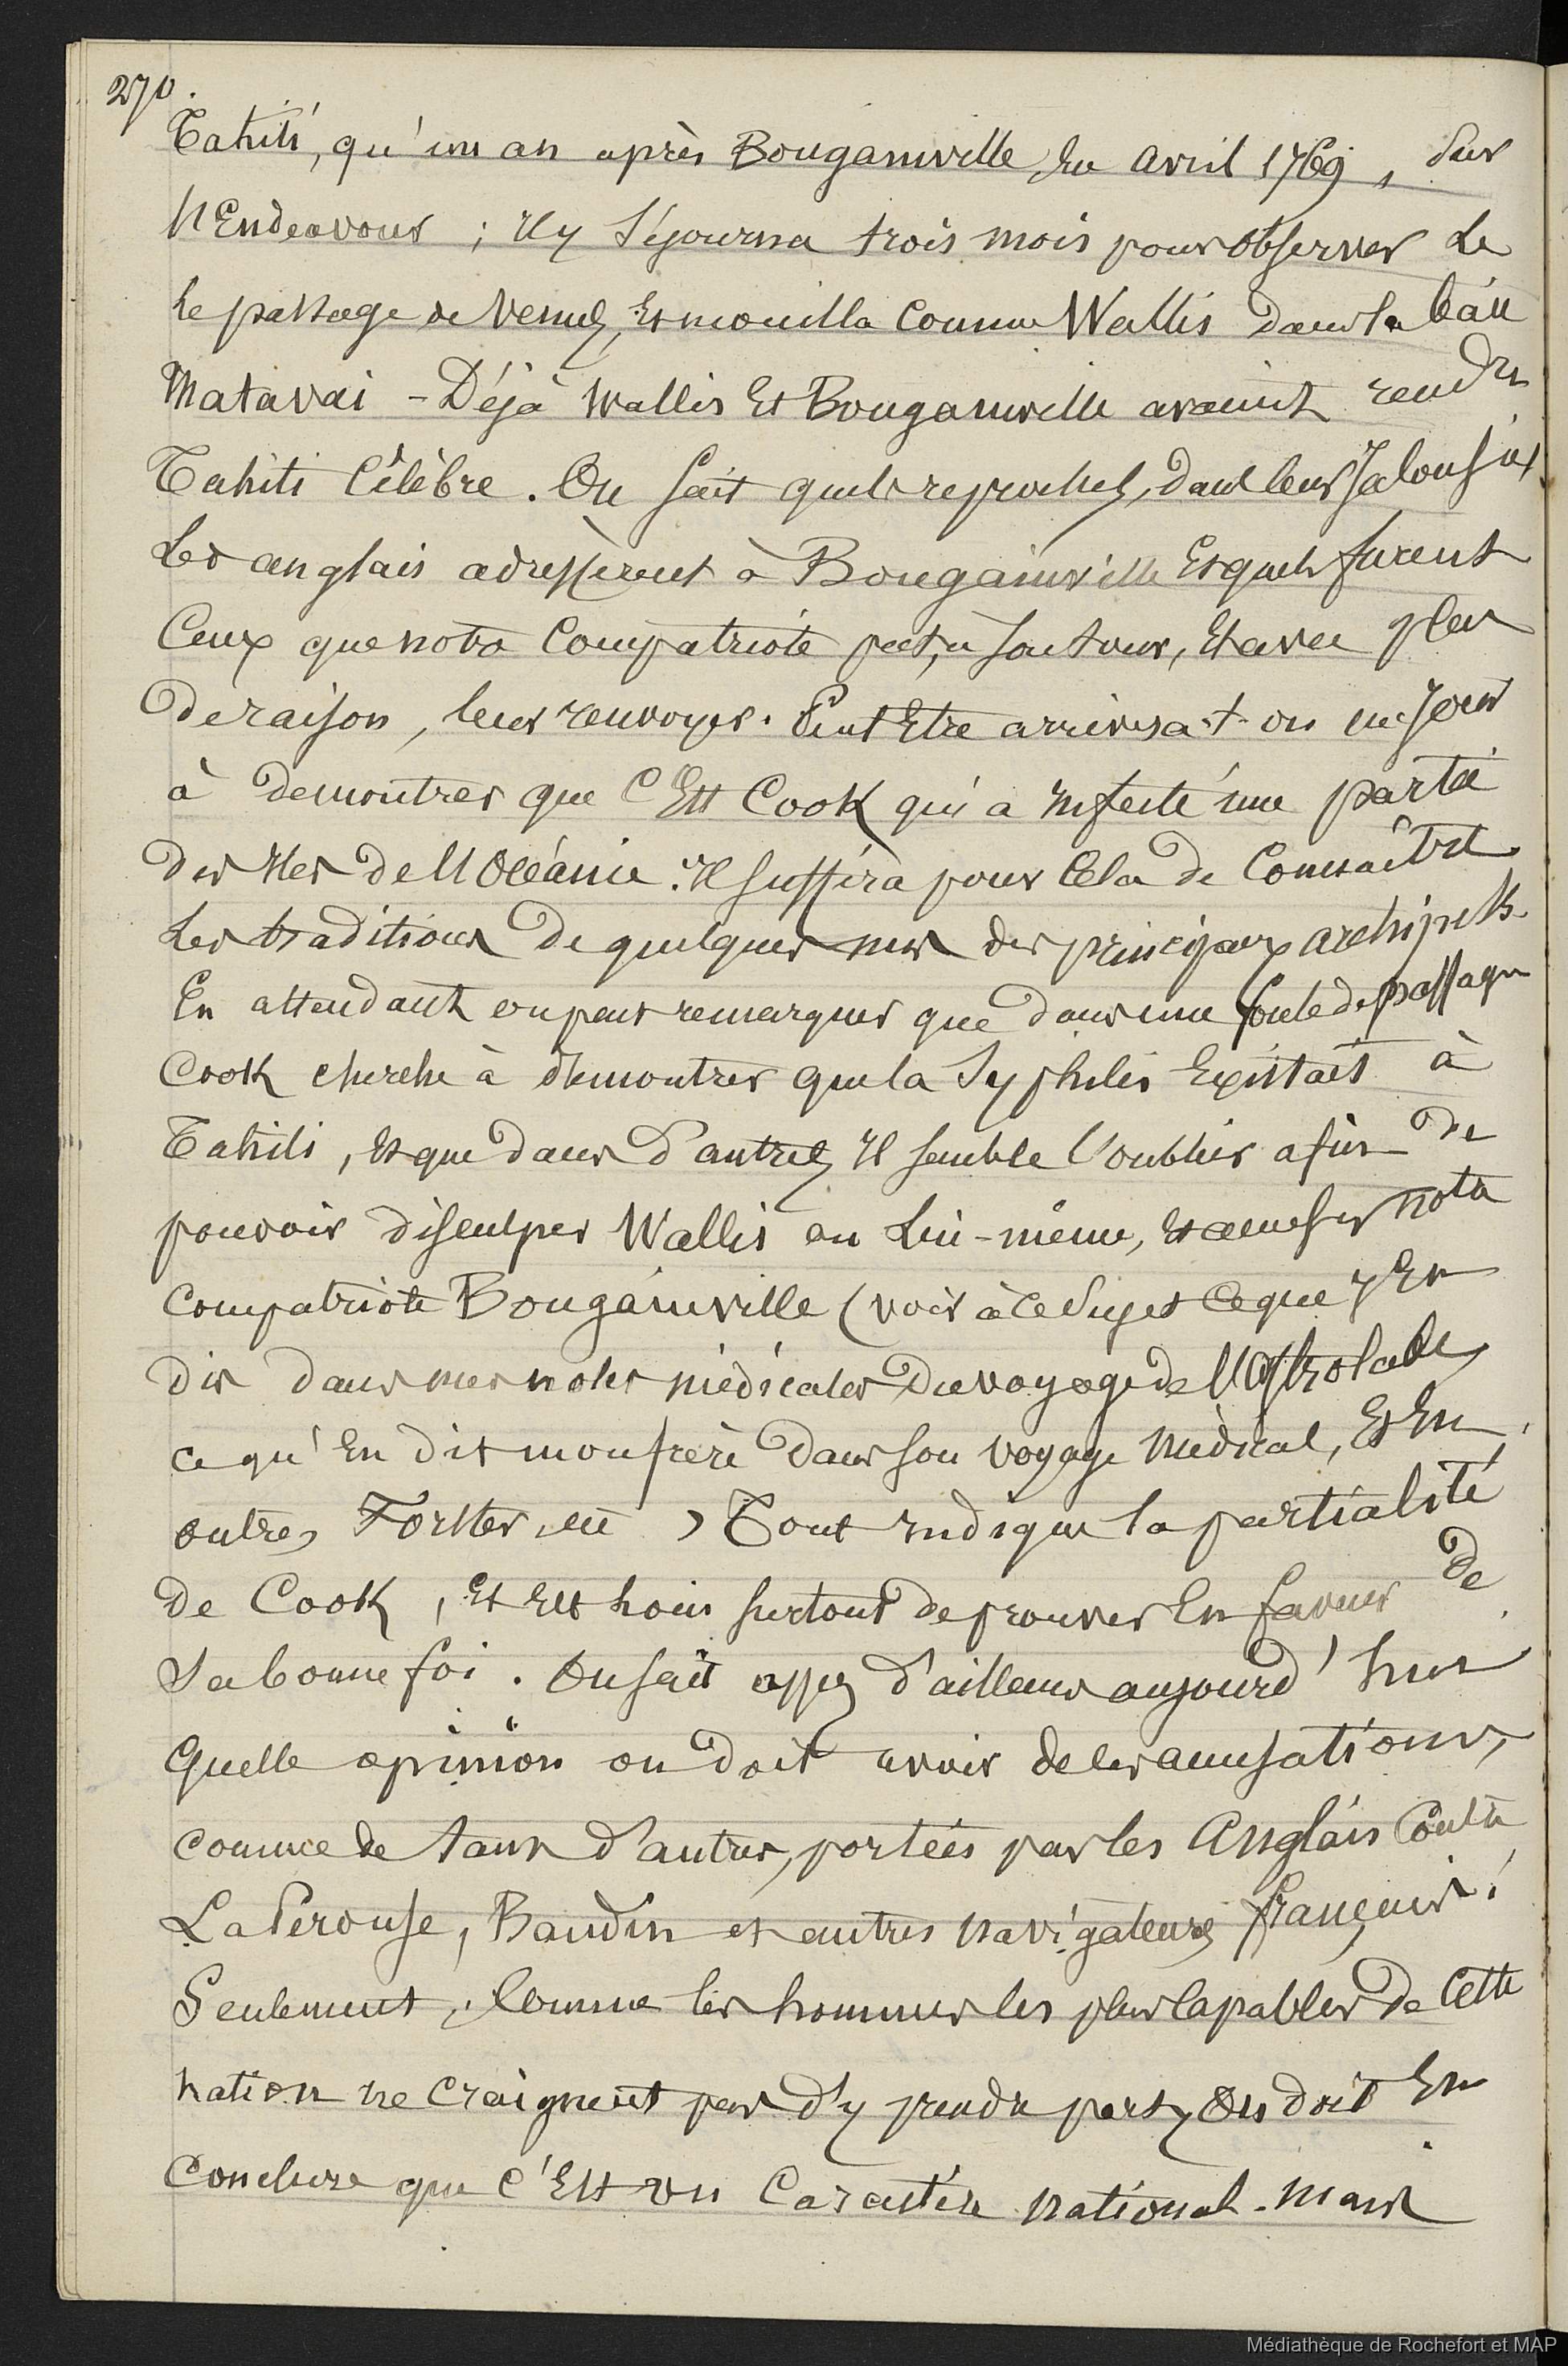 270.
Tahiti, qu'un an après Bougainville, en avril 1769, sur
l'Endeavour ; il y séjourna trois mois pour observer le
le passage de Venus, et mouilla comme Wallis dans la baie
Matavai - Déjà Wallis et Bougainville avaient rendu
Tahiti célèbre. On sait quels reproches, dans leur jalousie
les anglais adressèrent à Bougainville et quels furent
ceux que notre compatriote put, à son tour, et avec plus
de raison, leur renvoyer. Peut Etre arrivera-t-on un jour
à demontrer que c'Est Cook qui a infecté une partie
des Iles de l'Océanie. Il suffira pour cela de connaître
les traditions de quelques unes des principaux archipels.
En attendant on peut remarquer que dans une foule de passages
Cook cherche à démontrer que la Syphilis Existait à
Tahiti, et que dans d'autres Il semble l'oublier afin de
pouvoir disculper Wallis ou lui-même, et accuser notre
compatriote Bougainville (voir à ce sujet ce que j'En
dis dans mes notes médicales du voyage de l'Astrolabe,
ce qu'En dit mon frère dans son voyage médical, Et En
outre, Forster, etc ) Tout indique la partialité
de Cook, et Est loin surtout de prouver En faveur de
sa bonne foi. On sait assez d'ailleurs aujourd'hui
quelle opinion on doit avoir de les accusations,
comme de tant d'autres, portées par les Anglais contre
La Perouse, Baudin et autres navigateurs français !
Seulement, comme les hommes les plus capables de cette
nation ne craignent pas d'y prendre part, On doit En
conclure que c'Est un caractère national. Mais
Médiathèque de Rochefort et MAP